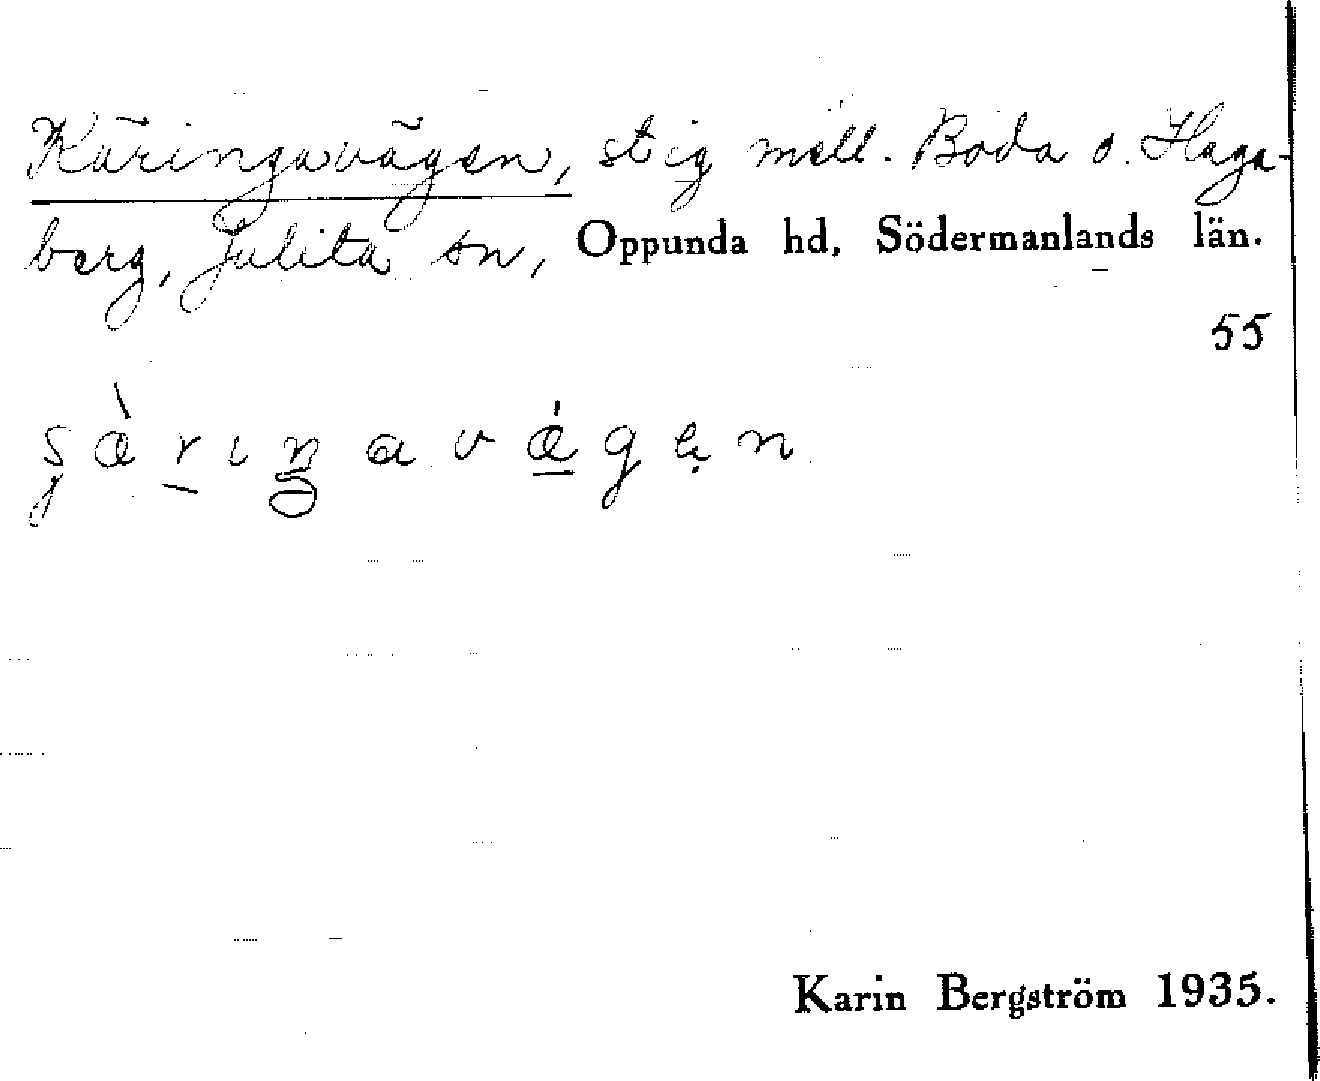 Käringavägen, stig mell. Boda o. Haga-
berg, Julita sn, Oppunda hd, Södermanlands län.
55
Karin Bergström 1935.